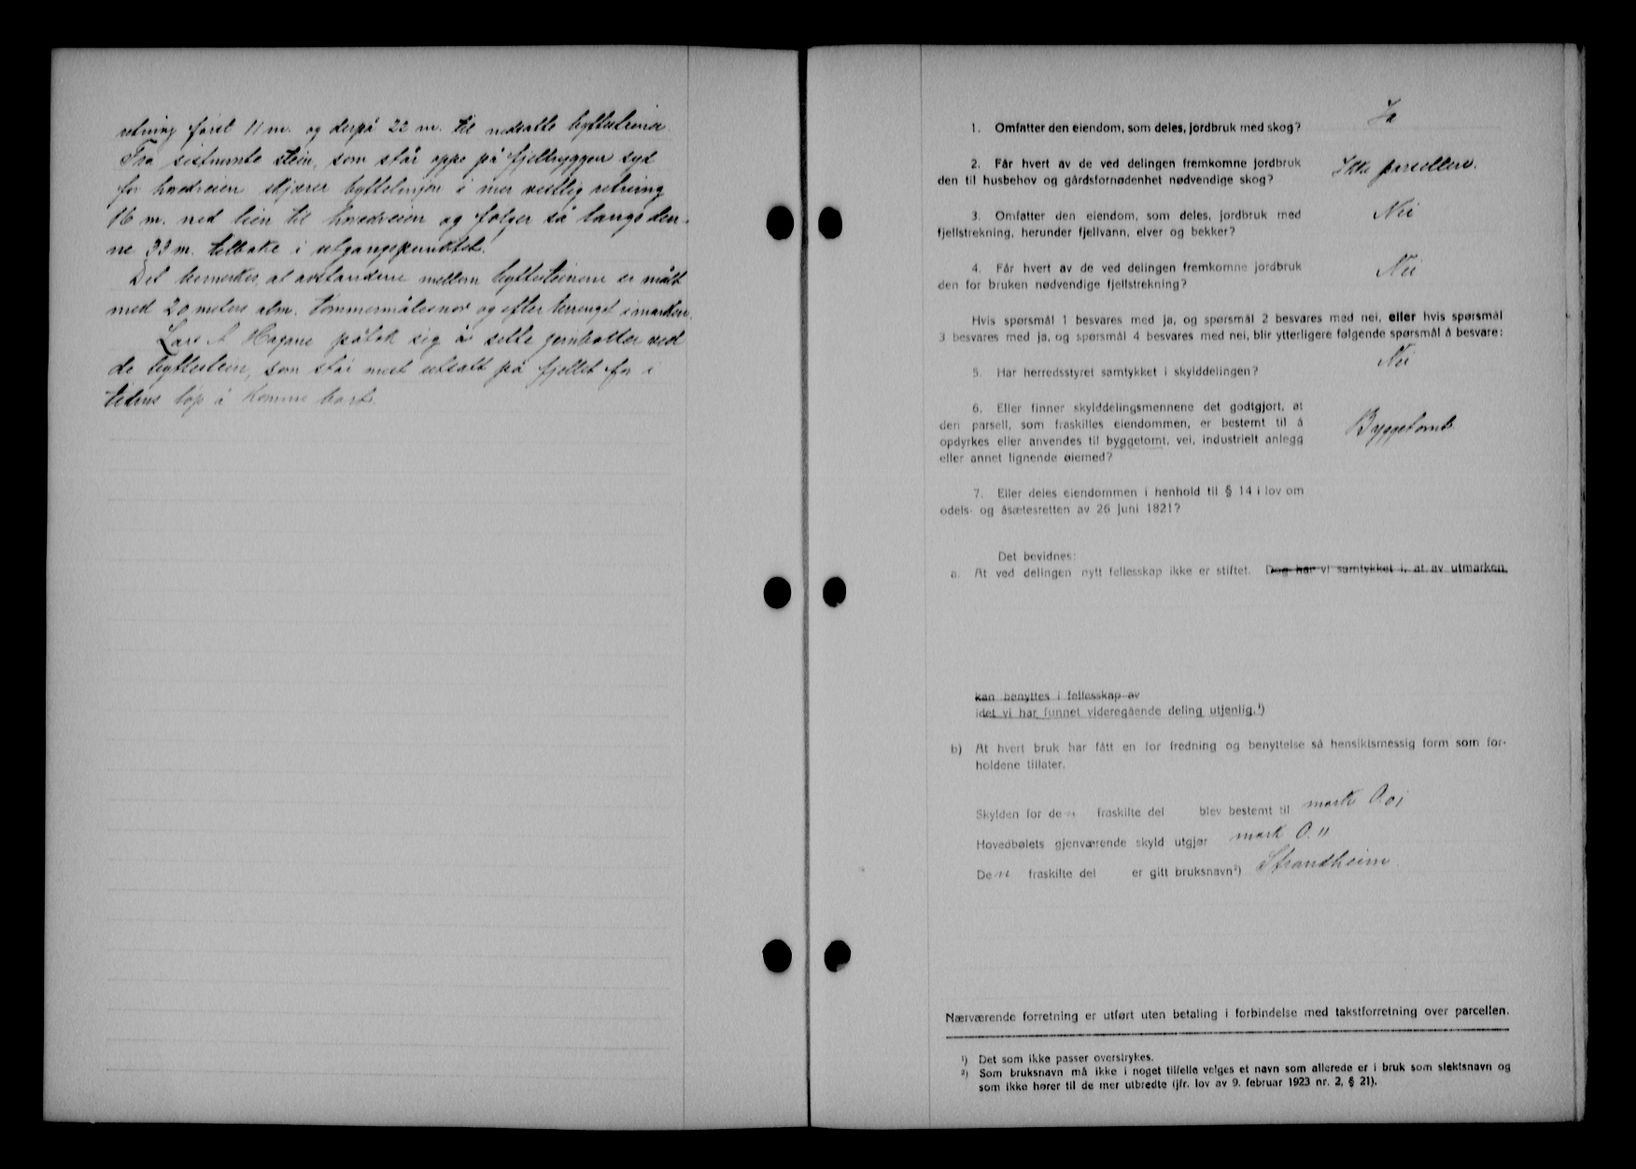 retning først 11 m. og derpå 22 m. til nedsatte byttesteiner
Fra sistnevnte stein, som står oppe på fjellryggen syd
for hovedveien skjærer byttelinjen i mer vestlig retning
16 m. ned leien til hovedveien og følger så langs den-
ne 33 m. tilbake i utgangspunktet.
Det bemerkes, at avstandene mellem byttesteinene er målt
med 20 meters alm. tommermålesnor og efter terrenget i marken.
Lars A Hagane påtok sig å sette jernbolter ved
de byttestein, som står mest utsatt på fjellet for i
tidens løp å komme bort.
1. Omfatter den eiendom, som deles, jordbruk med skog? Ja
2. Får hvert av de ved delingen fremkomne jordbruk
den til husbehov og gårdsfornødenhet nødvendige skog? Ikke parsellen.
3. Omfatter den eiendom, som deles, jordbruk med Nei
fjellstrekning, herunder fjellvann, elver og bekker?
4. Får hvert av de ved delingen fremkomne jordbruk Nei
den for bruken nødvendige fjellstrekning?
Hvis spørsmål 1 besvares med ja, og spørsmål 2 besvares med nei, eller hvis spørsmål
3 besvares med ja, og spørsmål 4 besvares med nei, blir ytterligere følgende spørsmål å besvare:
5. Har herredsstyret samtykket i skylddelingen? Nei
6. Eller finner skylddelingsmennene det godtgjort, at
den parsell, som fraskilles eiendommen, er bestemt til å
opdyrkes eller anvendes til byggetomt, vei, industrielt anlegg Byggetomt
eller annet lignende øiemed?
7. Eller deles eiendommen i henhold til § 14 i lov om
odels- og åsætesretten av 26 juni 1821?
Det bevidnes:
a. At ved delingen nytt fellesskap ikke er stiftet. Dog har vi samtykket i, at av utmarken
kan benyttes i fellesskap av
idet vi har funnet videregående deling utjenlig.¹)
b) At hvert bruk har fått en for fredning og benyttelse så hensiktsmessig form som for-
holdene tillater.
Skylden for den fraskilte del blev bestemt til mark 0.01
Hovedbølets gjenværende skyld utgjør mark 0.11
Den fraskilte del er gitt bruksnavn²) Strandheim.
Nærværende forretning er utført uten betaling i forbindelse med takstforretning over parcellen.
¹) Det som ikke passer overstrykes.
²) Som bruksnavn må ikke i noget tilfelle velges et navn som allerede er i bruk som slektsnavn og
som ikke hører til de mer utbredte (jfr. lov av 9. februar 1923 nr. 2, § 21).